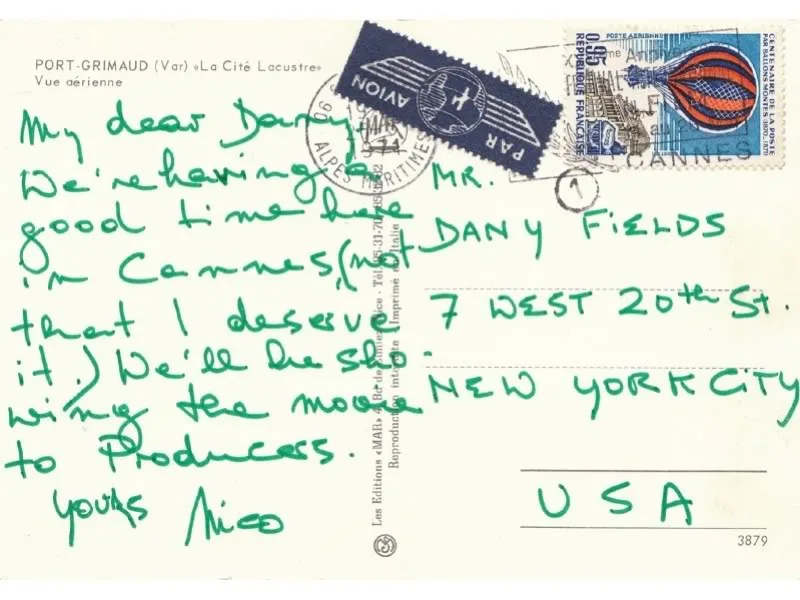 PORT-GRIMAUD (Var) «La Cité Lacustre»
Vue aérienne
My dear Dany,
We're having a
good time here
in Cannes, (not
that I deserve
it.) We'll be sho-
wing the movie
to Producers.
yours Nico
PAR AVION
ALPES MARITIMES
CENTENAIRE DE LA POSTE
PAR BALLONS MONTÉS 1870-1871
POSTE AERIENNE
0,95
REPUBLIQUE FRANÇAISE
CANNES
1
MR.
DANY FIELDS
7 WEST 20th St.
NEW YORK CITY
USA
Les Editions «MAR»
Imprimé en Italie
3879